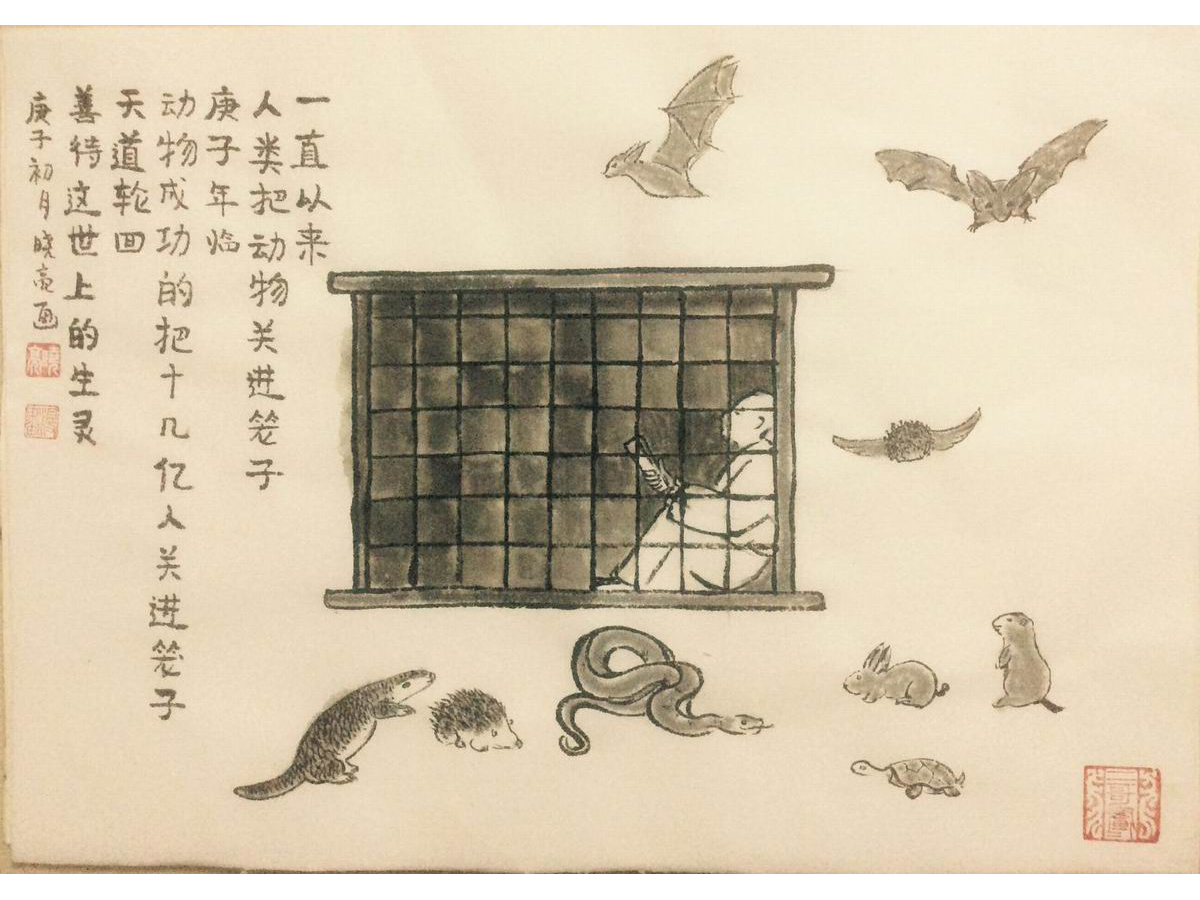 一直以来
人类把动物关进笼子
庚子年临
动物成功的把十几亿人关进笼子
天道轮回
善待这世上的生灵
庚子初月晓亮画